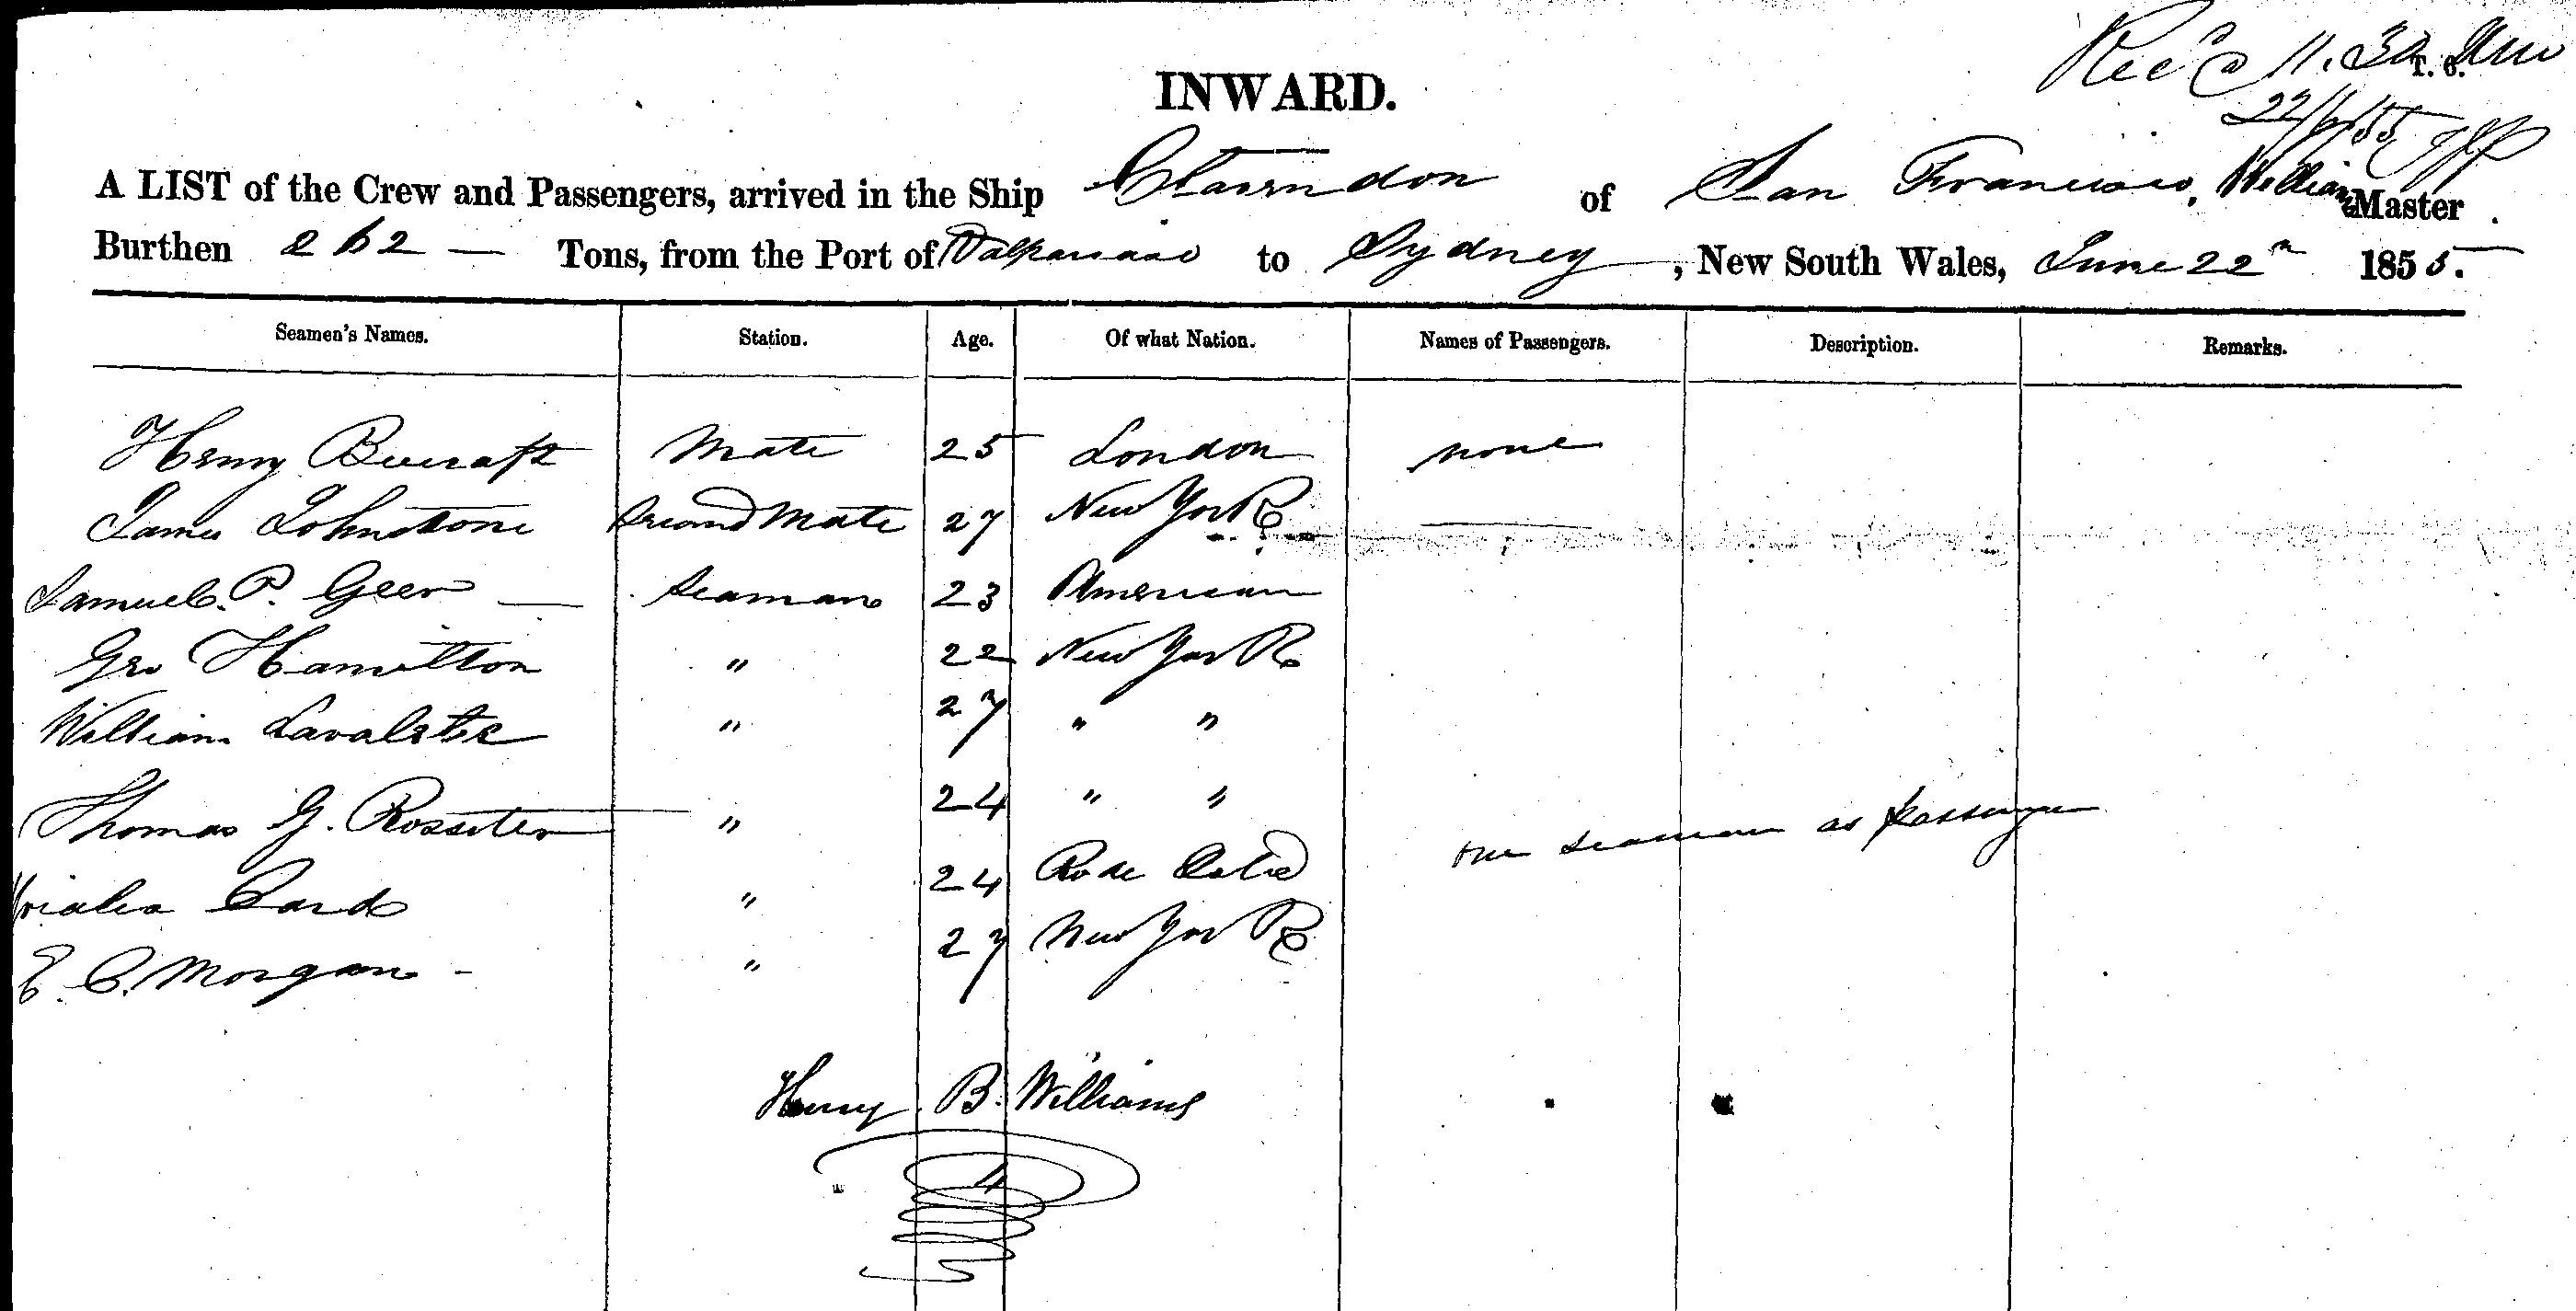 Recd 11.30 Am
T. S.
22/6/55
INWARD.
A LIST of the Crew and Passengers, arrived in the Ship Clarendon of San Francisco, Williams Master
Burthen 262 — Tons, from the Port of Valparaiso to Sydney, New South Wales, June 22n 1855.
Seamen's Names. Station. Age. Of what Nation. Names of Passengers. Description. Remarks.
Henry Mate 25 London none
James Johnstone Second Mate 27 New York
Samuel. P. Geer — Seaman 23 American
Geo Hamilton " 22 New York
William " 27 " "
Thomas G. Rossiter " 24 " "
one seaman as passenger
Card " 24
E. C. Morgan - " 27 New York
Henry B. Williams